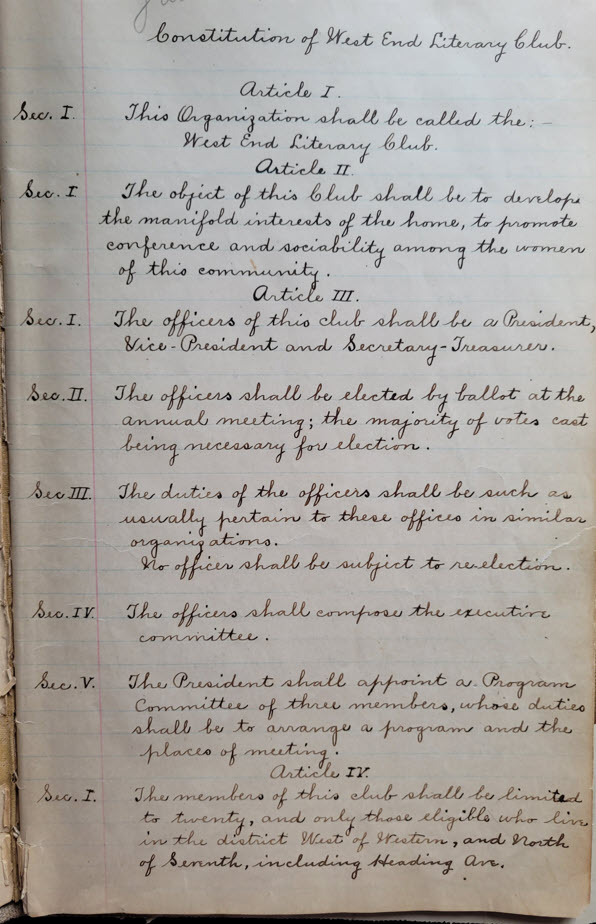 Constitution of West End Literary Club.
Article I.
Sec. I. This Organization shall be called the: -
West End Literary Club.
Article II.
Sec. I The object of this Club shall be to develope
the manifold interests of the home, to promote
conference and sociability among the women
of this community.
Article III.
Sec. I. The officers of this club shall be a President,
Vice-President and Secretary-Treasurer.
Sec. II. The officers shall be elected by ballot at the
annual meeting; the majority of votes cast
being necessary for election.
Sec III. The duties of the officers shall be such as
usually pertain to these offices in similar
organizations.
No officer shall be subject to re-election.
Sec. IV. The officers shall compose the executive
committee.
Sec. V. The President shall appoint a Program
Committee of three members, whose duties
shall be to arrange a program and the
places of meeting.
Article IV.
Sec. I. The members of this club shall be limited
to twenty, and only those eligible who live
in the district West of Western, and North
of Seventh, including Heading Ave.